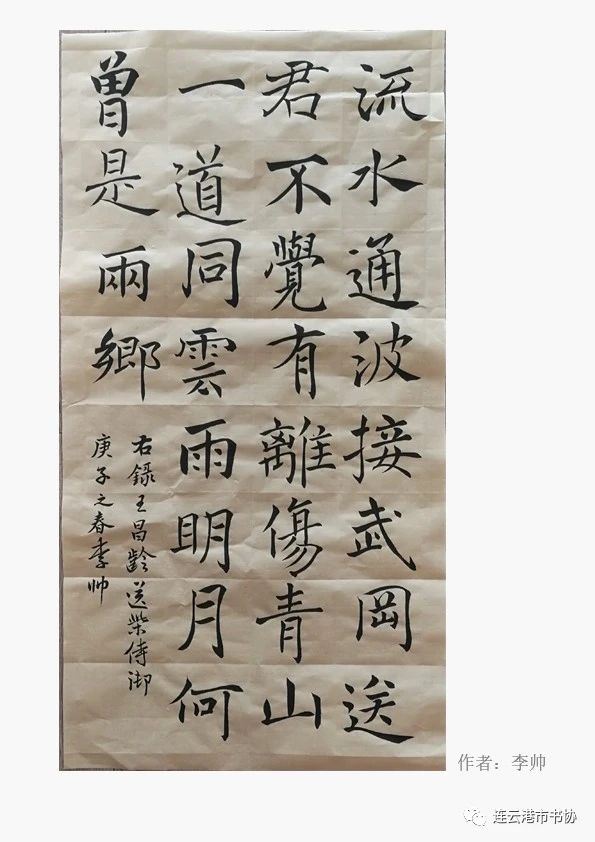 流水通波接武岡送
君不覺有離傷青山
一道同雲雨明月何
曾是兩鄉
右錄王昌齡送柴侍御
庚子之春李帅
作者：李帅
连云港市书协